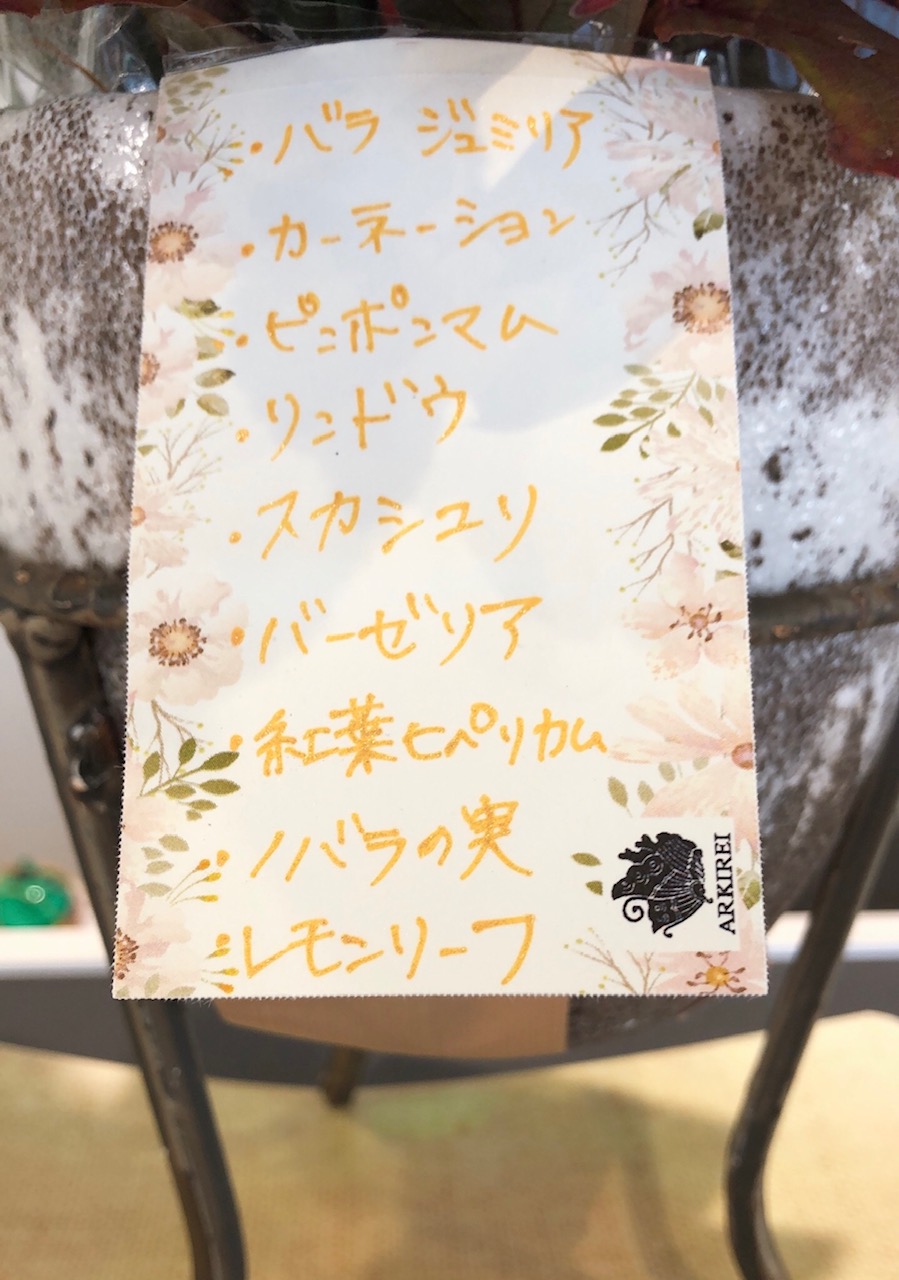 ・バラ ジュミリア
・カーネーション
・ピンポンマム
・リンドウ
・スカシユリ
・バーゼリア
・紅葉ヒペリカム
・ノバラの実
・レモンリーフ
ARKIREI